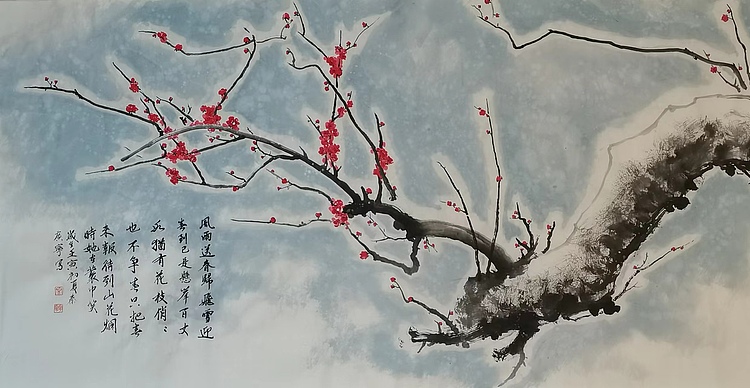 風雨送春歸飛雪迎
春到已是懸崖百丈
冰猶有花枝俏：
也不争春只把春
来報待到山花爛
時她在叢中笑
壬寅初夏
寧写